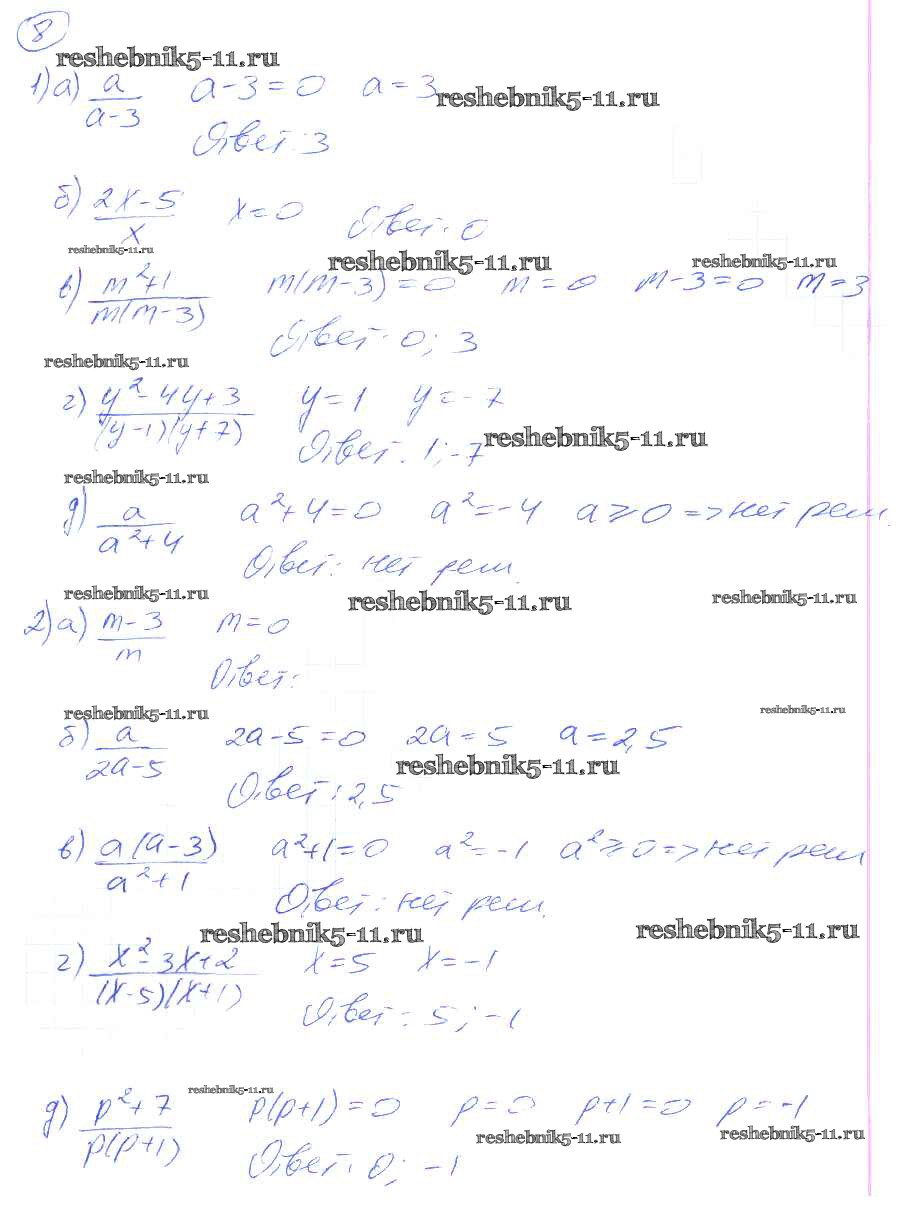 8
reshebnik5-11.ru
1) а) a/(a-3) a-3=0 a=3 reshebnik5-11.ru
Ответ: 3
б) (2x-5)/x x=0 Ответ: 0
reshebnik5-11.ru reshebnik5-11.ru reshebnik5-11.ru
в) (m²+1)/(m(m-3)) m(m-3)=0 m=0 m-3=0 m=3
Ответ: 0; 3
reshebnik5-11.ru
г) (y²-4y+3)/((y-1)(y+7)) y=1 y=-7
Ответ: 1; -7 reshebnik5-11.ru
reshebnik5-11.ru
д) a/(a²+4) a²+4=0 a²=-4 a⩾0 => нет реш.
Ответ: нет реш.
reshebnik5-11.ru reshebnik5-11.ru reshebnik5-11.ru
2) а) (m-3)/m m=0
Ответ:
reshebnik5-11.ru reshebnik5-11.ru
б) a/(2a-5) 2a-5=0 2a=5 a=2,5
reshebnik5-11.ru
Ответ: 2,5
в) a(a-3)/(a²+1) a²+1=0 a²=-1 a²⩾0 => нет реш
Ответ: нет реш.
reshebnik5-11.ru reshebnik5-11.ru
г) (x²-3x+2)/((x-5)(x+1)) x=5 x=-1
Ответ: 5; -1
reshebnik5-11.ru
д) (p²+7)/(p(p+1)) p(p+1)=0 p=0 p+1=0 p=-1
reshebnik5-11.ru reshebnik5-11.ru
Ответ: 0; -1